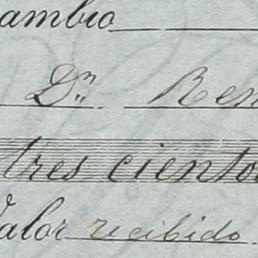 ambio
Dn Ren
tres ciento
Valor recibido